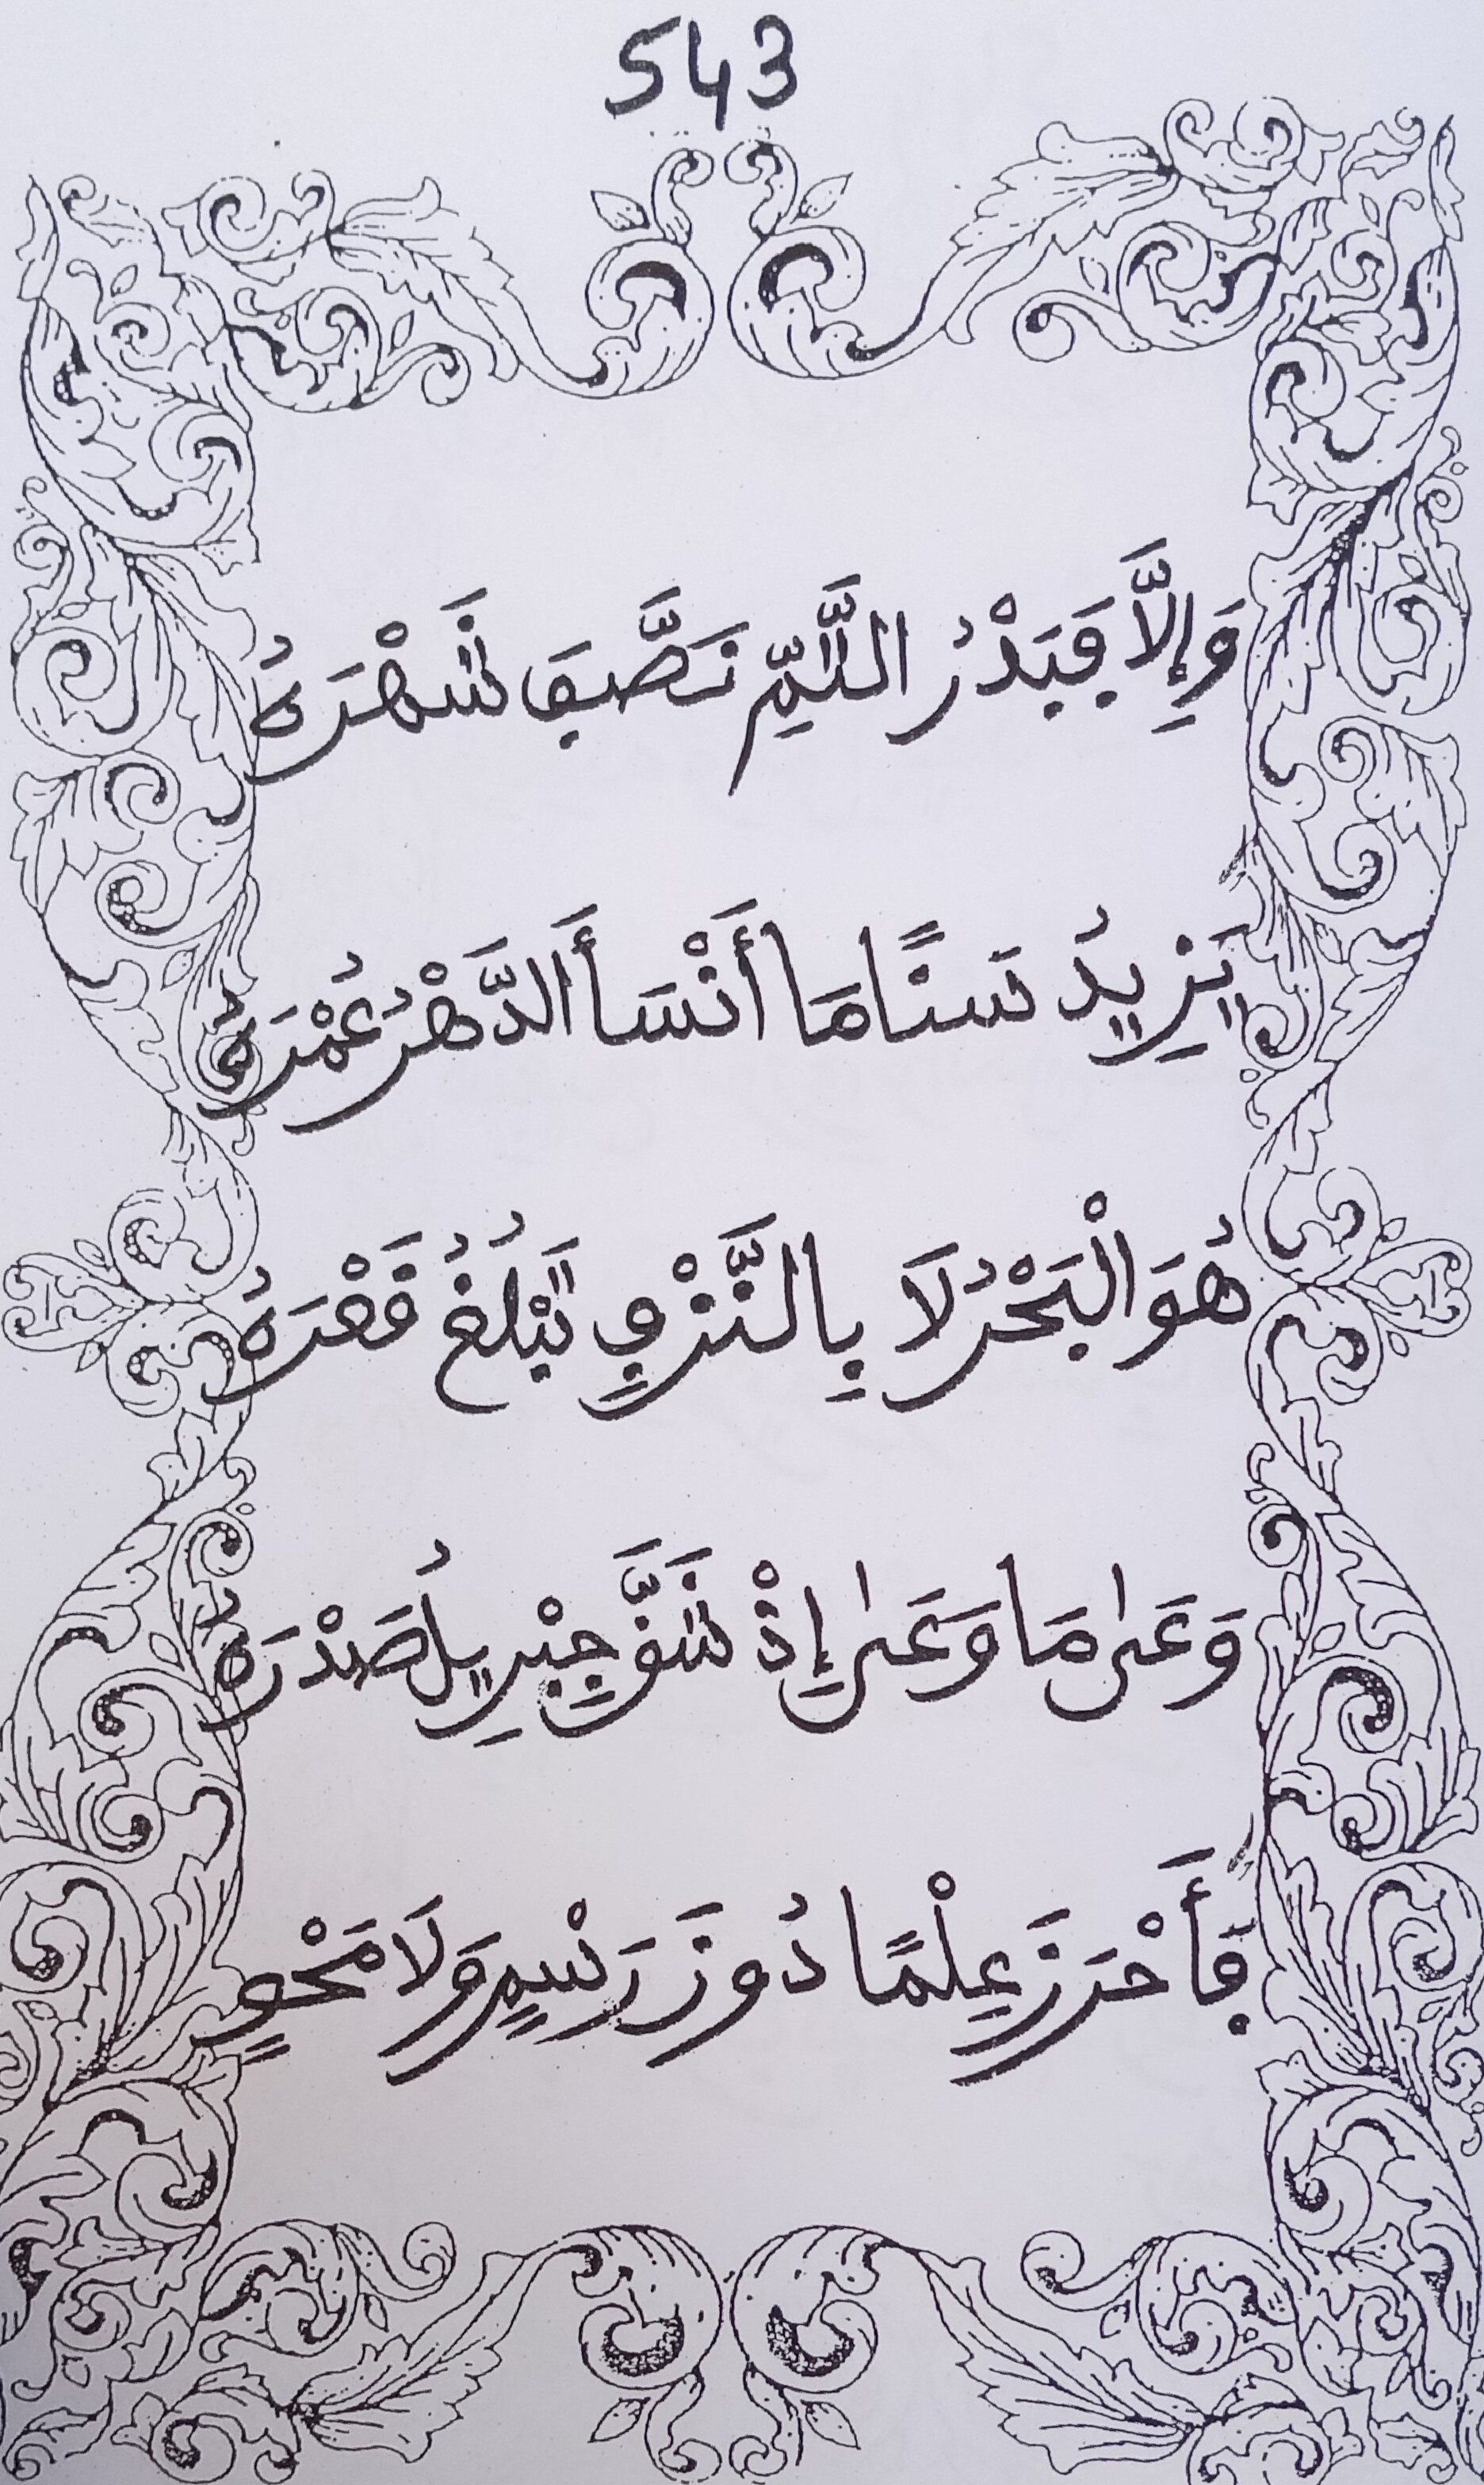 543
وَإِلَّا فَبَدْرُ التَّمِّ نَصَّفَ شَهْرَهُ
يَزِيدُ سَنًا مَا أَنْسَأَ الدَّهْرُ عُمْرَهُ
هُوَ الْبَحْرُ لَا بِالنَّزْفِ تَبْلُغُ قَعْرَهُ
وَعَىٰ مَا وَعَىٰ إِذْ شَقَّ جِبْرِيلُ صَدْرَهُ
فَأَحْرَزَ عِلْمًا دُونَ رَسْمٍ وَلَا مَحْوٍ